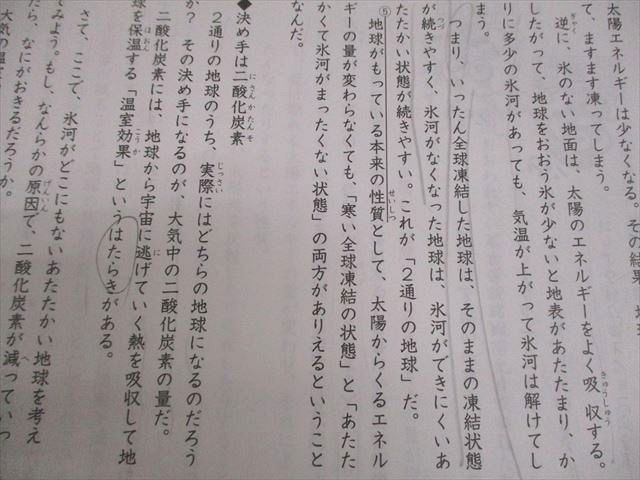 太陽エネルギーは少なくなる。その結果、地球
て、ますます凍ってしまう。
逆に、氷のない地面は、太陽のエネルギーをよく吸収する。
したがって、地球をおおう氷が少ないと地表があたたまり、か
りに多少の氷河があっても、気温が上がって氷河は解けてし
まう。
つまり、いったん全球凍結した地球は、そのままの凍結状態
が続きやすく、氷河がなくなった地球は、氷河ができにくいあ
たたかい状態が続きやすい。これが「2通りの地球」だ。
⑤地球がもっている本来の性質として、太陽からくるエネル
ギーの量が変わらなくても、「寒い全球凍結の状態」と「あたた
かくて氷河がまったくない状態」の両方がありえるということ
なんだ。
◆決め手は二酸化炭素
2通りの地球のうち、実際にはどちらの地球になるのだろう
か？その決め手になるのが、大気中の二酸化炭素の量だ。
二酸化炭素には、地球から宇宙に逃げていく熱を吸収して地
球を保温する「温室効果」というはたらきがある。
さて、ここで、氷河がどこにもないあたたかい地球を考え
てみよう。もし、なんらかの原因で、二酸化炭素が減っていっ
たら、なにがおきるだろうか。
大気の温